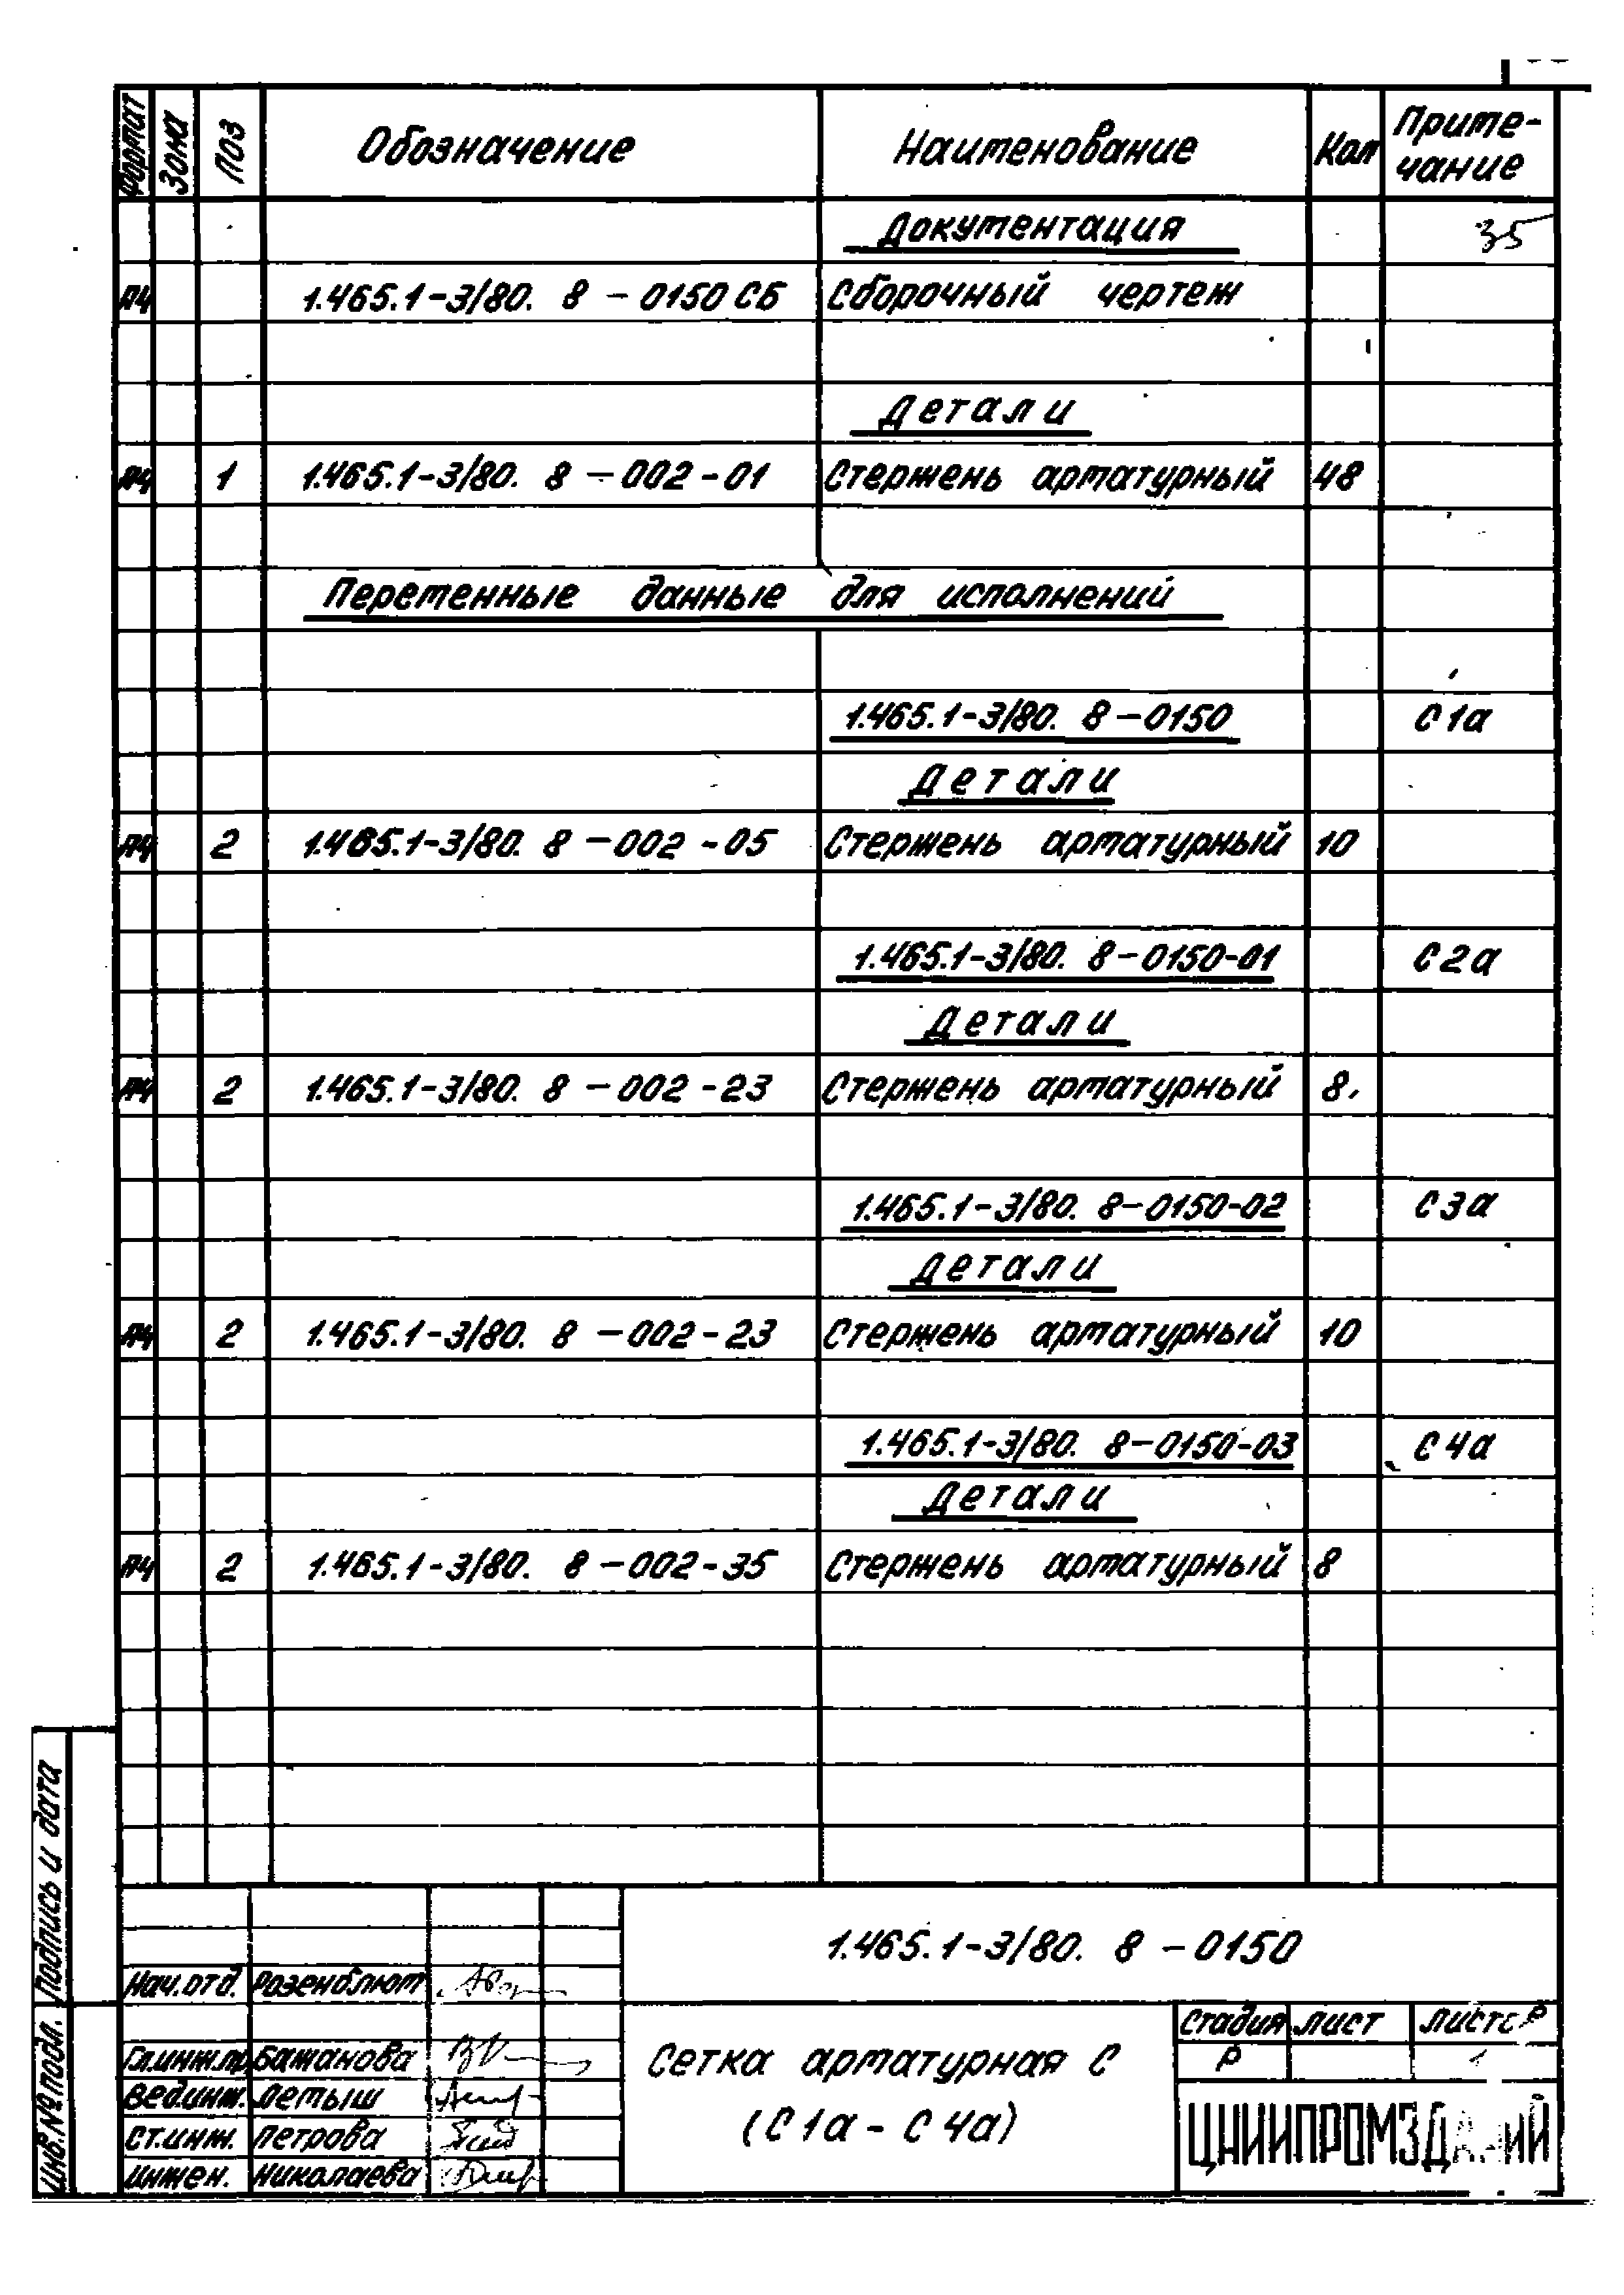 Формат Зона Поз Обозначение Наименование Кол Приме-
чание
Документация 35
А4 1.465.1-3/80. 8-0150 СБ Сборочный чертеж
Детали
А4 1 1.465.1-3/80. 8-002-01 Стержень арматурный 48
Переменные данные для исполнений
1.465.1-3/80. 8-0150 С1а
Детали
А4 2 1.465.1-3/80. 8-002-05 Стержень арматурный 10
1.465.1-3/80. 8-0150-01 С2а
Детали
А4 2 1.465.1-3/80. 8-002-23 Стержень арматурный 8
1.465.1-3/80. 8-0150-02 С3а
Детали
А4 2 1.465.1-3/80. 8-002-23 Стержень арматурный 10
1.465.1-3/80. 8-0150-03 С4а
Детали
А4 2 1.465.1-3/80. 8-002-35 Стержень арматурный 8
Подпись и дата
Инв.№ подл.
1.465.1-3/80. 8-0150
Нач.отд. Розенблюм
Гл.инж.пр Бажанова
Вед.инж. Летыш
Ст.инж. Петрова
Инжен. Николаева
Сетка арматурная С
(С1а-С4а)
Стадия Лист Листов
Р 1
ЦНИИПРОМЗДАНИЙ